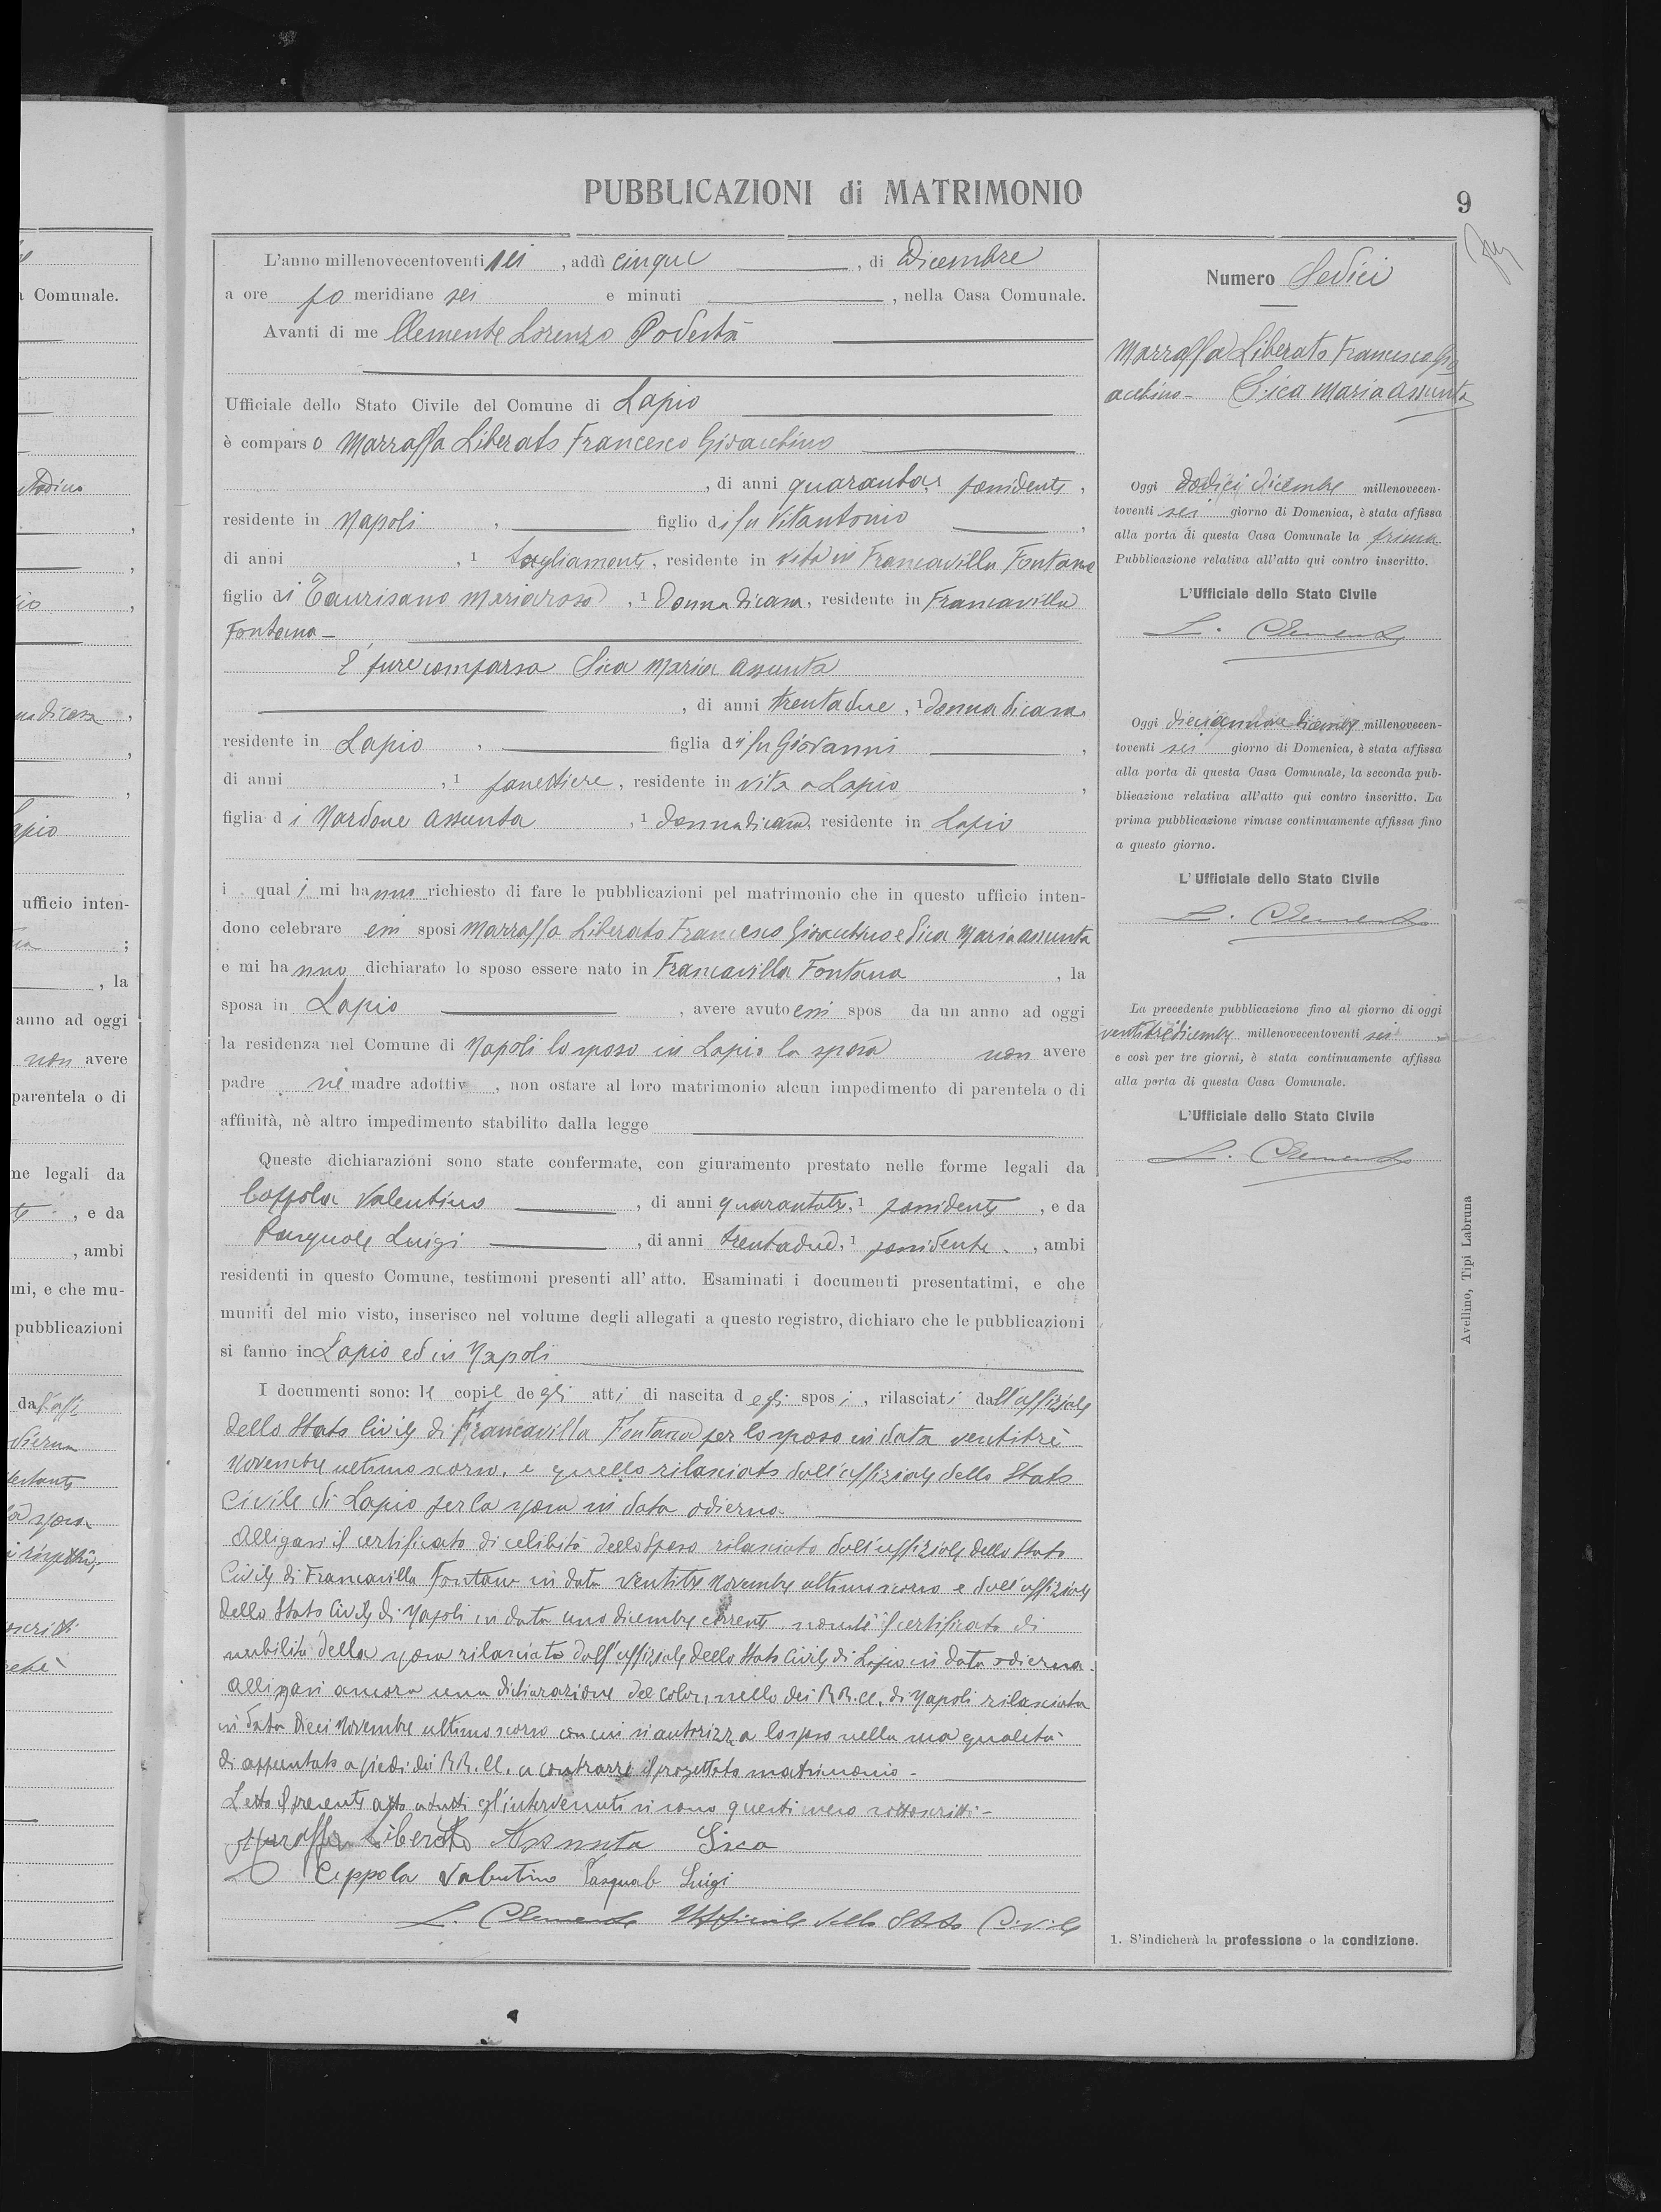 PUBBLICAZIONI di MATRIMONIO
9
L'anno millenovecentoventi sei, addì cinque, di Dicembre
a ore po meridiane sei e minuti, nella Casa Comunale.
Avanti di me Clemente Lorenzo Podestà
Ufficiale dello Stato Civile del Comune di Lapio
è comparso Marraffa Liberato Francesco Gioacchino
, di anni quaranta, possidente,
residente in Napoli, figlio di fu Vitantonio,
di anni , 1 , residente in vita in Francavilla Fontana
figlio di Taurisano Mariarosa, 1 Donna di casa, residente in Francavilla
Fontana -
È pure comparsa Sica Maria Assunta
, di anni trentadue, 1 donna di casa
residente in Lapio, figlia di fu Giovanni,
di anni , 1 panettiere, residente in vita a Lapio,
figlia di Nardone Assunta, 1 Donna di casa, residente in Lapio
i quali mi hanno richiesto di fare le pubblicazioni pel matrimonio che in questo ufficio inten-
dono celebrare essi sposi Marraffa Liberato Francesco Gioacchino e Sica Maria Assunta
e mi hanno dichiarato lo sposo essere nato in Francavilla Fontana, la
sposa in Lapio, avere avuto essi spos da un anno ad oggi
la residenza nel Comune di Napoli lo sposo in Lapio la sposa non avere
padre nè madre adottiv , non ostare al loro matrimonio alcun impedimento di parentela o di
affinità, nè altro impedimento stabilito dalla legge
Queste dichiarazioni sono state confermate, con giuramento prestato nelle forme legali da
Coppola Valentino, di anni quarantatre, 1 possidente, e da
Pasquale Luigi, di anni trentadue, 1 possidente, ambi
residenti in questo Comune, testimoni presenti all'atto. Esaminati i documenti presentatimi, e che
muniti del mio visto, inserisco nel volume degli allegati a questo registro, dichiaro che le pubblicazioni
si fanno in Lapio ed in Napoli
I documenti sono: le copie degli atti di nascita degli sposi, rilasciati dall'uffiziale
dello Stato Civile di Francavilla Fontana per lo sposo in data ventitrè
Novembre ultimo scorso, e quello rilasciato dall'uffiziale dello Stato
Civile di Lapio per la sposa in data odierna
Alligasi il certificato di celibità dello sposo rilasciato dall'uffiziale dello Stato
Civile di Francavilla Fontana in data ventitre Novembre ultimo scorso e dall'uffiziale
dello Stato Civile di Napoli in data uno dicembre corrente nonchè il certificato di
nubilità della sposa rilasciato dall'uffiziale dello Stato Civile di Lapio in data odierna.
Alligasi ancora una dichiarazione del Colonnello dei RR.CC. di Napoli rilasciata
in data dieci Novembre ultimo scorso con cui si autorizza lo sposo nella sua qualità
di appuntato a piedi dei RR.CC. a contrarre il progettato matrimonio -
Letto il presente atto a tutti gl'intervenuti si sono questi meco sottoscritti -
Maraffa Liberato Assunta Sica
Coppola Valentino Pasquale Luigi
L. Clemente Ufficiale dello Stato Civile
Numero Sedici
Marraffa Liberato Francesco Gio
acchino - Sica Maria Assunta
Oggi dodici dicembre millenovecen-
toventi sei giorno di Domenica, è stata affissa
alla porta di questa Casa Comunale la prima
Pubblicazione relativa all'atto qui contro inscritto.
L'Ufficiale dello Stato Civile
L. Clemente
Oggi diciannove dicembre millenovecen-
toventi sei giorno di Domenica, è stata affissa
alla porta di questa Casa Comunale, la seconda pub-
blicazione relativa all'atto qui contro inscritto. La
prima pubblicazione rimase continuamente affissa fino
a questo giorno.
L'Ufficiale dello Stato Civile
L. Clemente
La precedente pubblicazione fino al giorno di oggi
ventitrè dicembre millenovecentoventi sei
e così per tre giorni, è stata continuamente affissa
alla porta di questa Casa Comunale.
L'Ufficiale dello Stato Civile
L. Clemente
1. S'indicherà la professione o la condizione.
Avellino, Tipi Labruna
a Comunale.
ufficio inten-
, la
anno ad oggi
non avere
parentela o di
me legali da
, e da
, ambi
mi, e che mu-
pubblicazioni